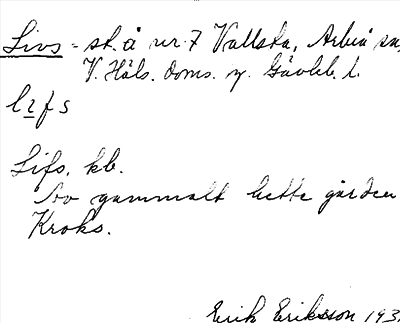 Livs - st. å nr 7 Vallsta, Arbrå sn,
V. Häls. doms. Gävleb. l.
Lifs, kb.
gammalt hette gården
Kroks.
Erik Eriksson 193